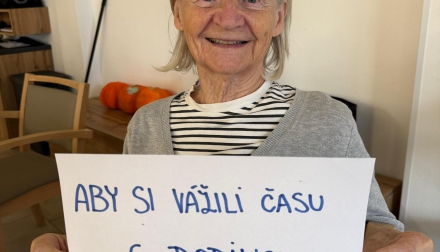 ABY SI VÁŽILI ČASU
S